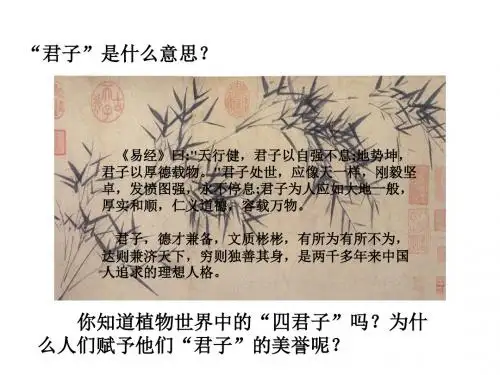 “君子”是什么意思？
《易经》曰:"天行健，君子以自强不息;地势坤，
君子以厚德载物。"君子处世，应像天一样，刚毅坚
卓，发愤图强，永不停息;君子为人应如大地一般，
厚实和顺，仁义道德，容载万物。
君子，德才兼备，文质彬彬，有所为有所不为，
达则兼济天下，穷则独善其身，是两千多年来中国
人追求的理想人格。
你知道植物世界中的“四君子”吗？为什
么人们赋予他们“君子”的美誉呢？